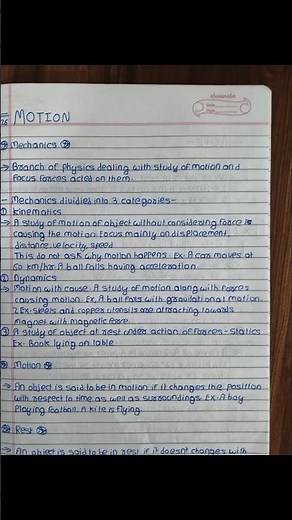 MOTION
Mechanics
→ Branch of physics dealing with study of motion and
focus forces acted on them.
- Mechanics dividied into 3 categories-
① Kinematics
→ A study of motion of object without considering force is
causing the motion. Focus mainly on displacement,
distance, velocity, speed
This do not ask why motion happens. Ex. A car moves at
60 km/hr. A ball falls having acceleration.
② Dynamics
→ Motion with cause. A study of motion along with forces
causing motion. Ex, A ball falls with gravitational motion.
2 Ex. Steels and copper utensils are attracting towards
magnet with magnetic force.
③ A study of object at rest under action of forces - Statics
Ex- Book lying on table
Motion
→ An object is said to be in motion if it changes the position
with respect to time as well as surroundings. Ex. A boy
playing football. A kite is flying.
Rest
→ An object is said to be in rest if it doesn't changes with